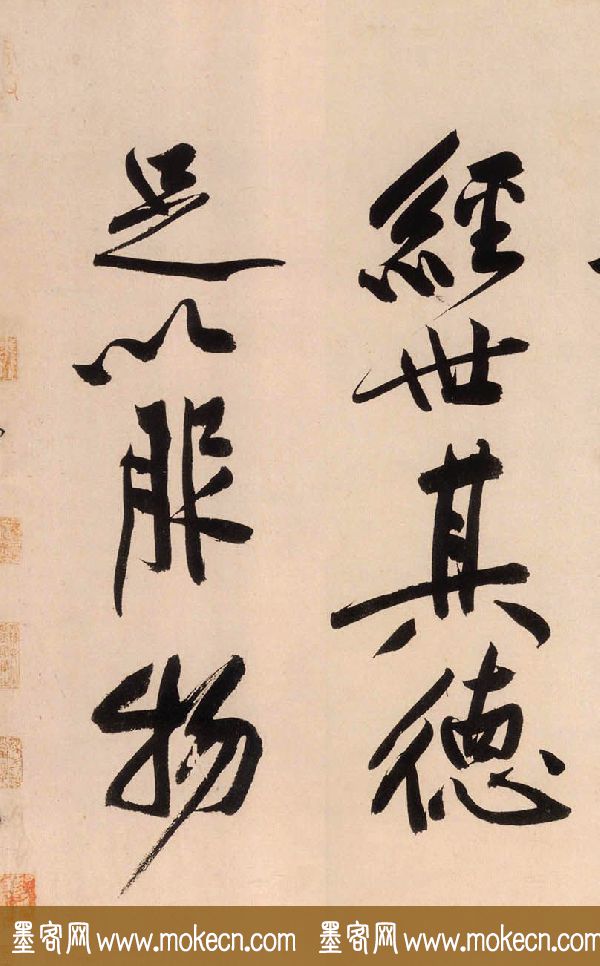 經世其德
足以服物
墨客网 www.mokecn.com 墨客网 www.mokecn.com